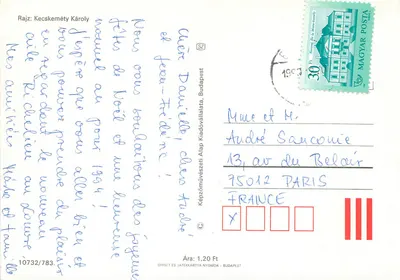 Rajz: Kecskeméty Károly
Chère Danielle, chers André
et Jean-Frédéric !
Nous vous souhaitons des joyeuses
fêtes de Noël et une heureuse
nouvel an pour 1994 !
J'espère que vous allez bien et
vous pouvez prendre du plaisir
en regardant le nouveau
aile Richelieu au Louvre.
Mes amitiés
et famille
Képzőművészeti Alap Kiadóvállalata, Budapest
30
MAGYAR POSTA
Mme et M.
André Sanconie
13, av du Belair
75012 PARIS
FRANCE
x
10732/783.
Ára: 1.20 Ft